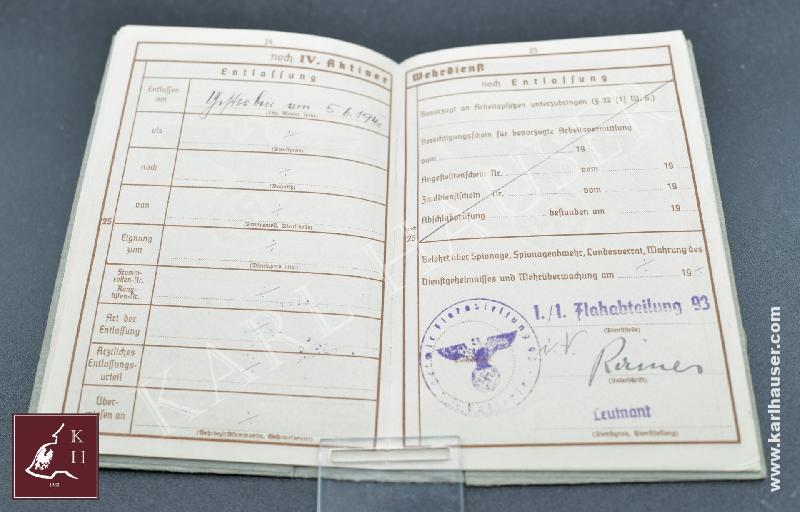 24
nach IV. Aktiver
Entlassung
Entlassen
am
Gestorben am 5.6.1940
(Tag, Monat, Jahr)
als
(Dienstgrad)
nach
(Wohnsitz)
von
25
Eignung
zum
(Dienstgrad usw.)
Stamm-
rollen-Nr.
Rang-
listen-Nr.
Art der
Entlassung
Ärztliches
Entlassungs-
urteil
Über-
wiesen an
(Wehrbezirkskommando, Wehrmeldeamt)
25
Wehrdienst
nach Entlassung
Bevorzugt an Arbeitsplätzen unterzubringen (§ 32 [1] W. G.)
Berechtigungsschein für bevorzugte Arbeitsvermittlung
vom 19
Angestelltenschein Nr. vom 19
Zivildienstschein Nr. vom 19
Abschlußprüfung bestanden am 19
25
Belehrt über Spionage, Spionageabwehr, Landesverrat, Wahrung des
Dienstgeheimnisses und Wehrüberwachung am 19
1./l. Flakabteilung 93
(Dienststelle)
i.V.
(Unterschrift)
Leutnant
(Dienstgrad, Dienststellung)
KARL HAUSER
KARL HAUSER
K
H
www.karlhauser.com